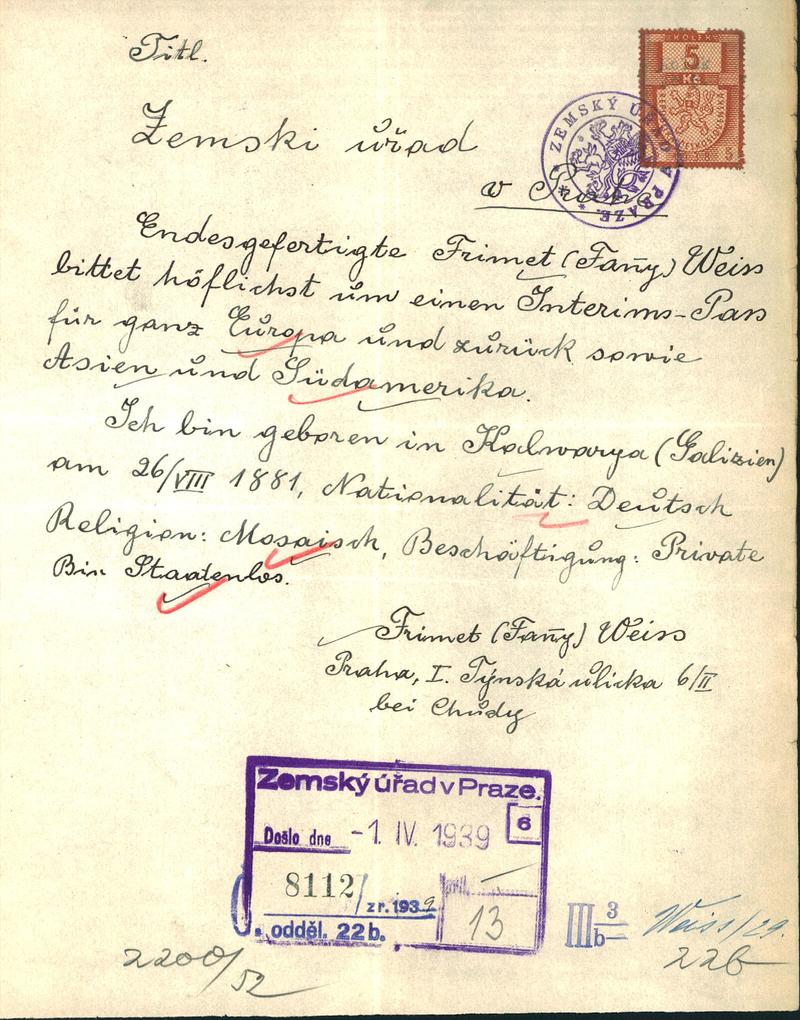 Titl.
KOLEK
5
Kč
ZEMSKÝ ÚŘAD V PRAZE.
Zemski úřad
v Praze
Endesgefertigte Frimet (Fañy) Weiss
bittet höflichst um einen Interims-Pass
für ganz Europa und zurück sowie
Asien und Südamerika.
Ich bin geboren in Kalwarya (Galizien)
am 26/VIII 1881, Nationalität: Deutsch
Religion: Mosaisch, Beschäftigung: Private
Bin Staatenlos.
Frimet (Fañy) Weiss
Praha, I. Týnská ulicka 6/II
bei Chudy
Zemský úřad v Praze.
6
Došlo dne -1. IV. 1939
8112/ z r. 1939
13
odděl. 22 b.
III 3
b-
Weiss/29.
22b
2200/52